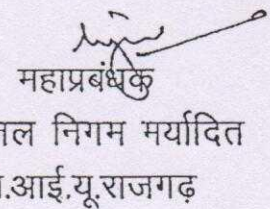 महाप्रबंधक
निगम मर्यादित
आई.यू.राजगढ़